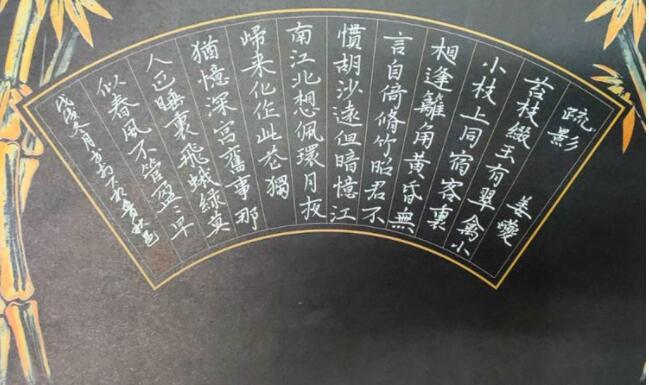 疏影 姜夔
苔枝綴玉有翠禽小
小枝上同宿客裏
相逢籬角黄昏無
言自倚脩竹昭君不
慣胡沙遠但暗憶江
南江北想佩環月夜
歸来化作此花獨
猶憶深宮舊事那
人正睡裏飛蛾緑莫
似春風不管盈〻早
戊戌六月書